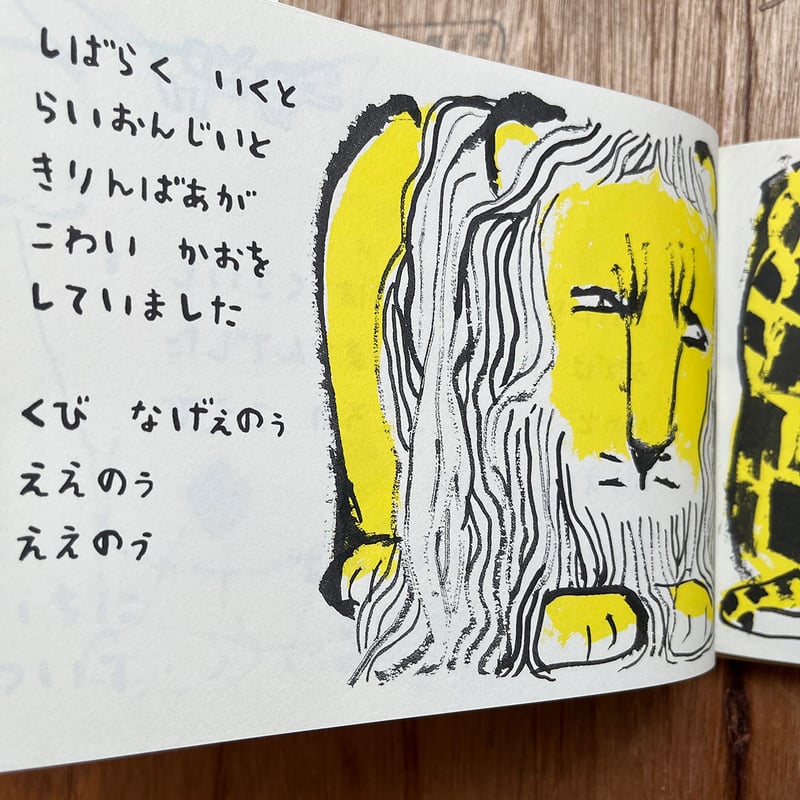 しばらく いくと
らいおんじいと
きりんばあが
こわい かおを
していました
くび なげぇのぅ
ええのぅ
ええのぅ